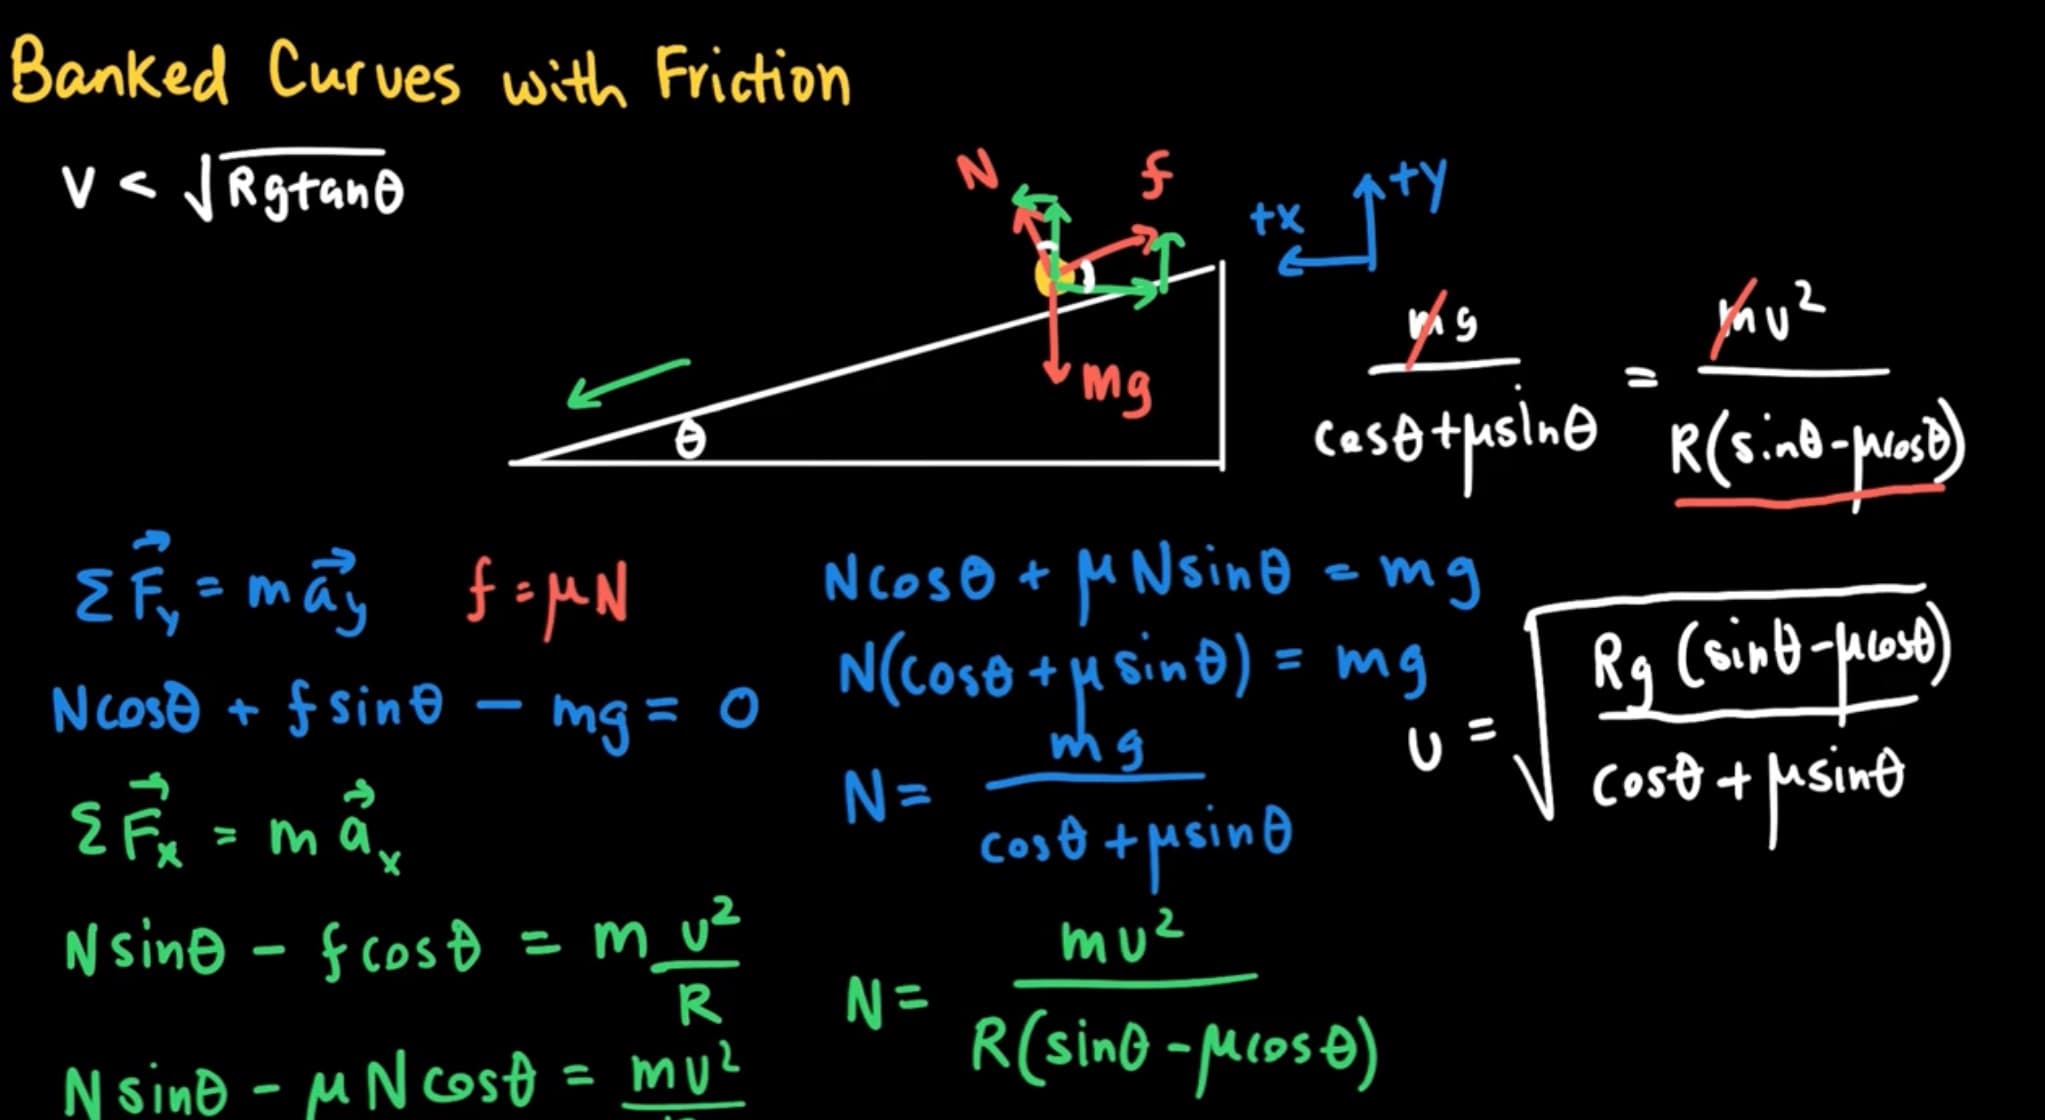 Banked Curves with Friction
V < √Rgtanθ
N f
+x +y
mg
θ
mg / cosθ+μsinθ = mv² / R(sinθ-μcosθ)
ΣF⃗y = ma⃗y f=μN
Ncosθ + fsinθ - mg = 0
ΣF⃗x = ma⃗x
Nsinθ - fcosθ = m v²/R
Nsinθ - μNcosθ = mv²
Ncosθ + μNsinθ = mg
N(cosθ + μsinθ) = mg
N = mg / cosθ + μsinθ
N = mv² / R(sinθ - μcosθ)
v = √ Rg(sinθ-μcosθ) / cosθ + μsinθ